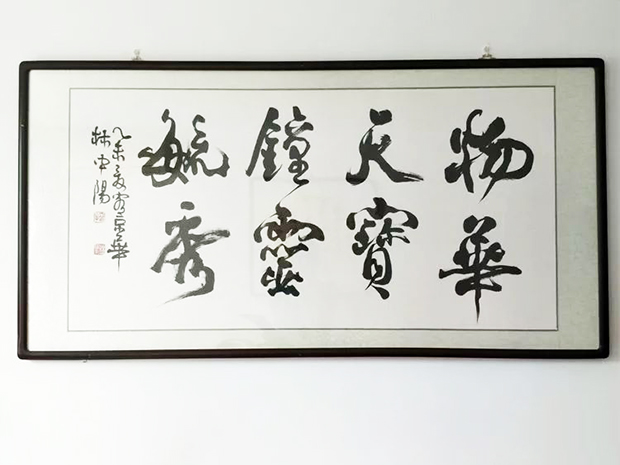 物華
天寶
鐘靈
毓秀
乙未之夏寫京華
林中陽